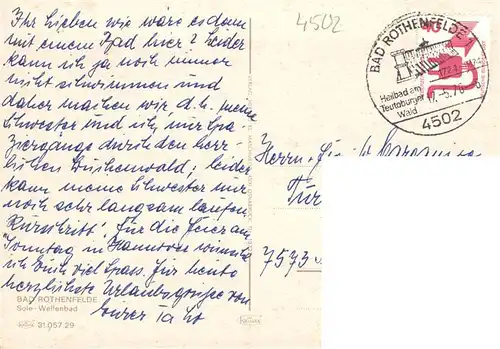 Ihr Lieben wie wäre es denn
mit einem Bad hier? Leider
kann ich ja noch immer
nicht schwimmen und
daher machen wir, d.h. meine
Schwester und ich, nur Spa
ziergänge durch den herr-
lichen Buchenwald; leider
kann meine Schwester nur
noch sehr langsam laufen
Für die Feier am
Sonntag in Hannover wünsche
ich Euch viel Spass. Für heute
herzlichste Urlaubsgrüsse von
Eurer
BAD ROTHENFELDE
Sole-Wellenbad
31.057.29
4502
BAD ROTHENFELDE
Heilbad am
Teutoburger
Wald
4502
Herrn
7573